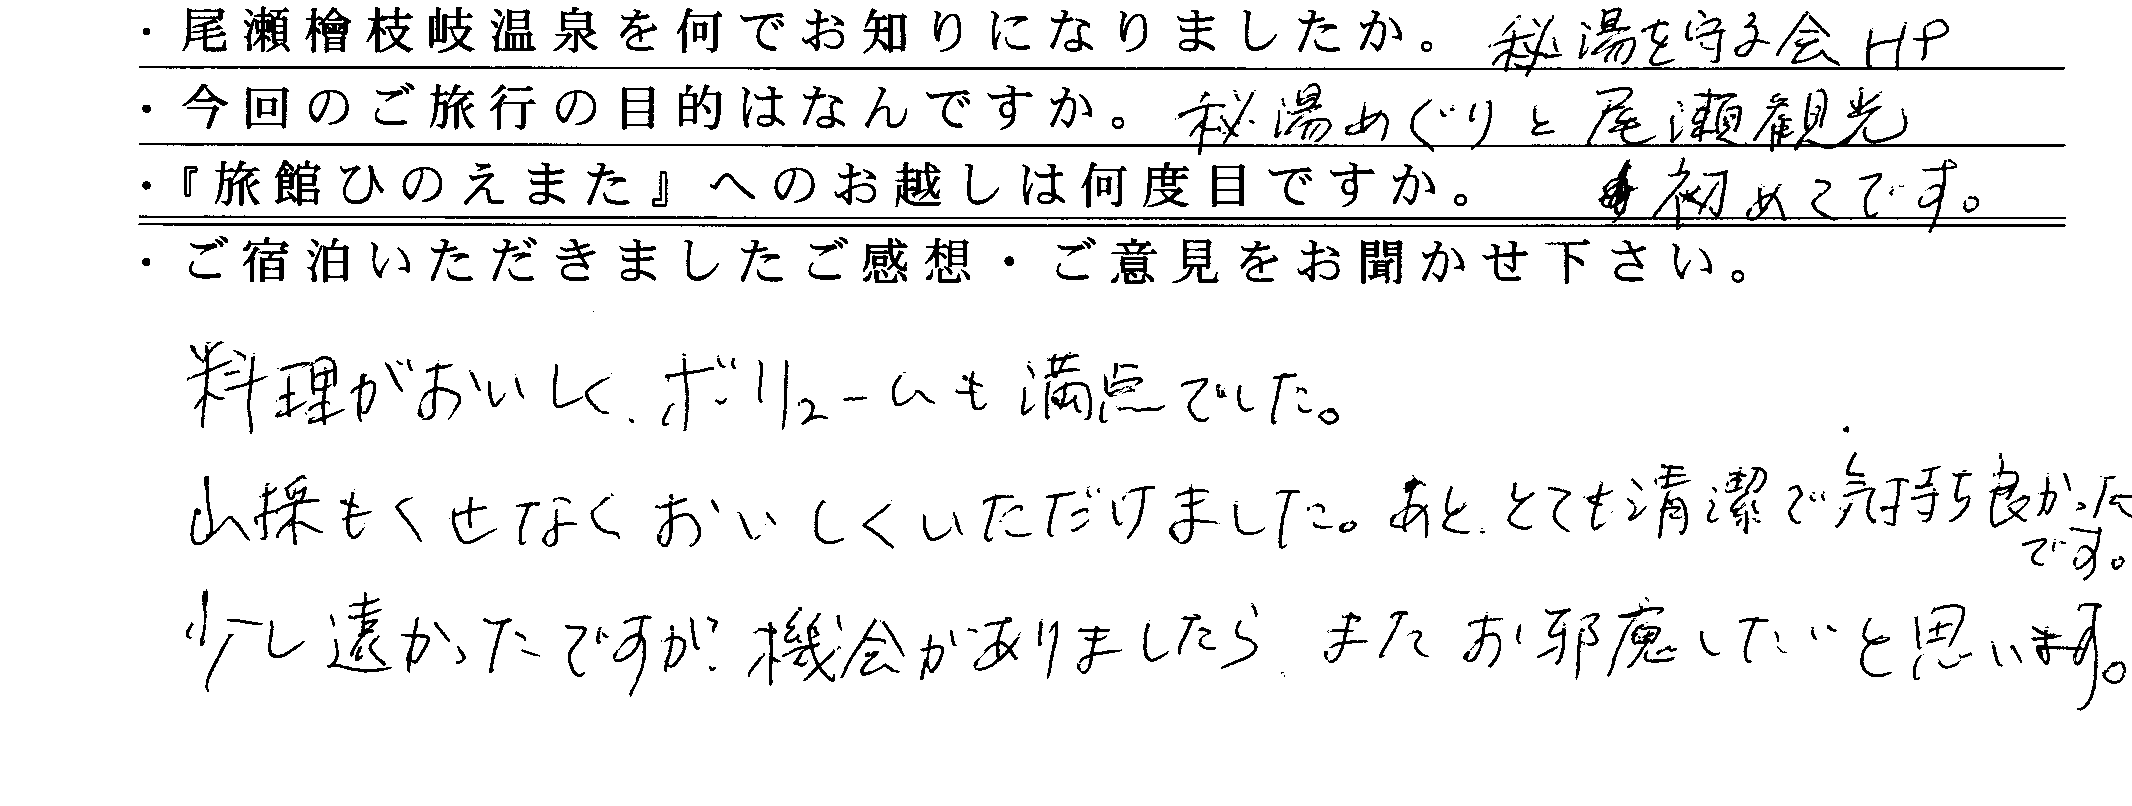 ・尾瀬檜枝岐温泉を何でお知りになりましたか。秘湯を守る会HP
・今回のご旅行の目的はなんですか。秘湯めぐりと尾瀬観光
・『旅館ひのえまた』へのお越しは何度目ですか。初めてです。
・ご宿泊いただきましたご感想・ご意見をお聞かせ下さい。
料理がおいしく、ボリュームも満点でした。
山採もくせなくおいしくいただけました。あと、とても清潔で気持ち良かった
です。
少し遠かったですが、機会がありましたら、またお邪魔したいと思います。